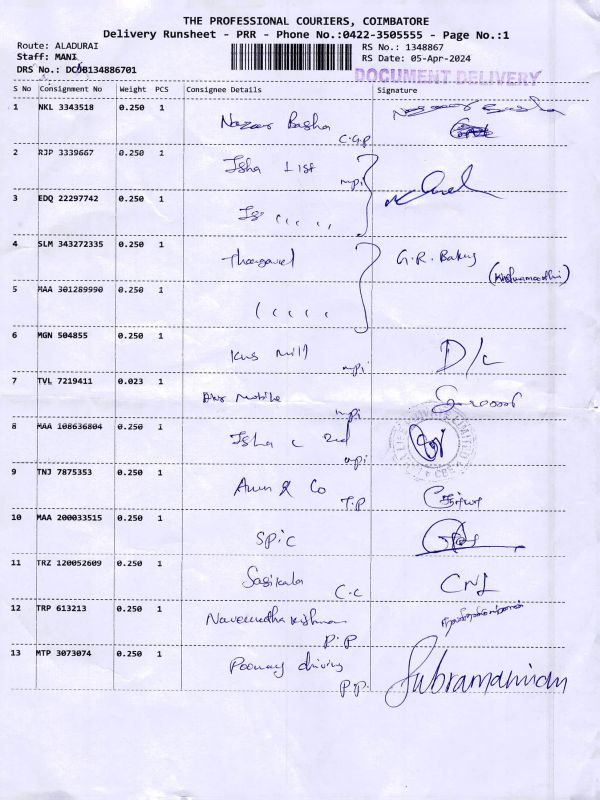 THE PROFESSIONAL COURIERS, COIMBATORE
Delivery Runsheet - PRR - Phone No.:0422-3505555 - Page No.:1
Route: ALADURAI RS No.: 1348867
Staff: MANI RS Date: 05-Apr-2024
DRS No.: 134886701 DOCUMENT DELIVERY
S No Consignment No Weight PCS Consignee Details Signature
1 NKL 3343518 0.250 1 Nazar Basha
C.G.P
2 RJP 3339667 0.250 1 Isha 1 Ist
mpi
3 EDQ 22297742 0.250 1
4 SLM 343272335 0.250 1 Thangavel G.R. Bakery
5 MAA 301289990 0.250 1
6 MGN 504855 0.250 1 Kns Mill D/C
mpi
7 TVL 7219411 0.023 1 Mobile
mpi
8 MAA 108636804 0.250 1 Isha 2nd
mpi
9 TNJ 7875353 0.250 1 Arun & Co
T.P
10 MAA 200033515 0.250 1 SPIC
11 TRZ 120052609 0.250 1 Sasikala CNI
C.C
12 TRP 613213 0.250 1 Naveendha Krishnan
P.P
13 MTP 3073074 0.250 1 driving Subramanian
P.P.